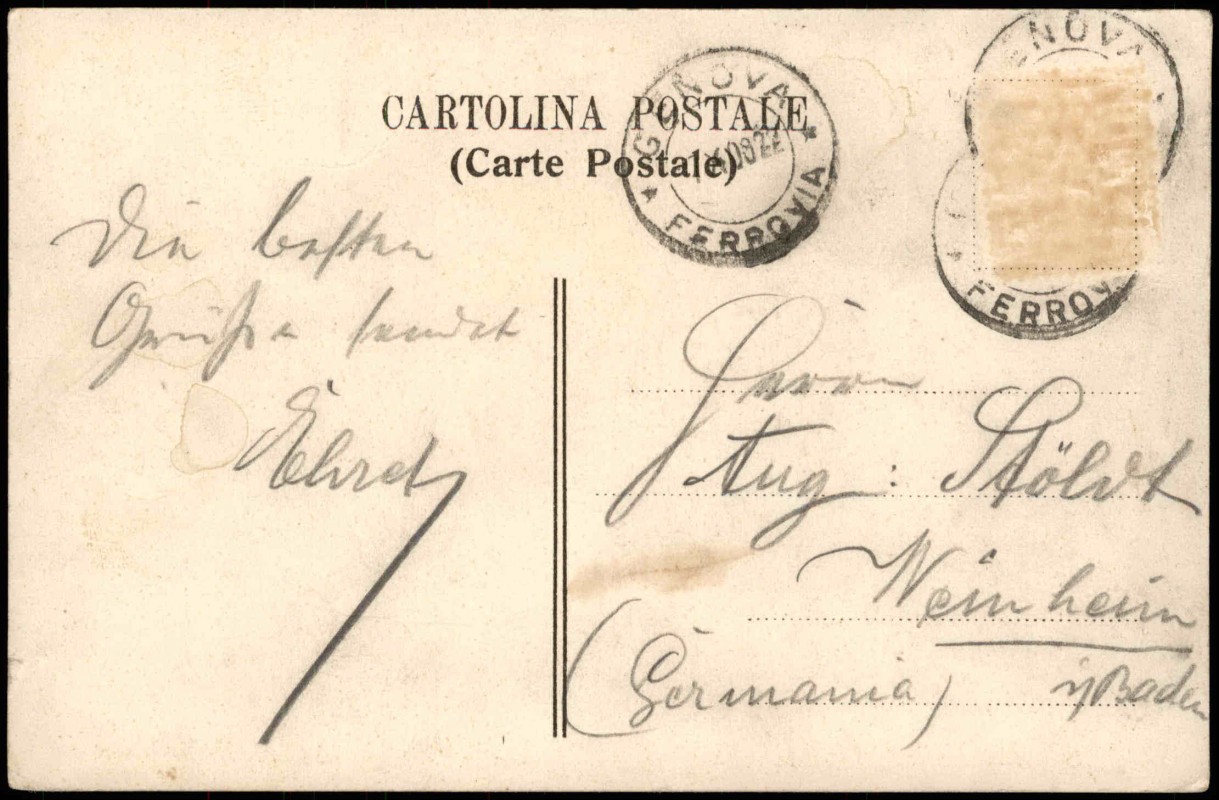 CARTOLINA POSTALE
(Carte Postale)
GENOVA
FERROVIA
08 22
ENOVA
FERROV
Die besten
Grüße sendet
Ehret
Herrn
Aug: Stöldt
Weinheim
(Germania) i/Baden